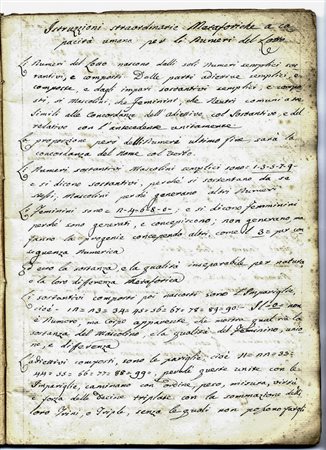 Istruzioni straordinarie Metaforiche a ca
pacità umana per li Numeri del Lotto
I Numeri del Lotto nascono dalli soli Numeri semplici sos
tantivi, e composti. Dalle parti adietive semplici, e
composte, e dagl'impari sostantivi semplici, e compo
sti, sì Mascolini che feminini, che Neutri comuni a tre
Simili alle Concordanze dell'adiettivo col Sostantivo, e del
relativo con l'antecedente unitamente.
A proporzione però dell'Numero ultimo fine sarà la
concordanza del Nome col Verbo.
I Numeri sostantivi Mascolini semplici sono = 1-3-5-7-9-
e si dicono sostantivi perchè si sostentano da se
stessi, Mascolini perchè generano altri Numeri
I feminini sono = 2-4-6-8- e si dicono femminini
perchè sono generati, e concepiscono; non generano ma
fanno la progenie concependo altri, come il 3 = per con
seguenza Numerica
la sostanza, e la qualità inseparabile per natura
e la loro differenza Metaforica
I sostantivi composti poi nascosti sono l'Impariglie,
cioè = 12= 23= 34= 45= 56= 67= 78= 89= 90= Il = 0 = non
è Numero, ma Corpo apparente, che mostra qual sia la
sostanza del Mascolino, e la qualità del Feminino, unio
ne, e differenza
L'adiettivi composti, sono le pariglie cioè 11= 22= 33=
44= 55= 66= 77= 88= 99=, perchè queste unite con le
Impariglie, caminano con Ordine, peso, misura, virtù
e forza delle Decine triplate con la sommazione de
loro Trini, o Triple, senza le quali non possono fargli